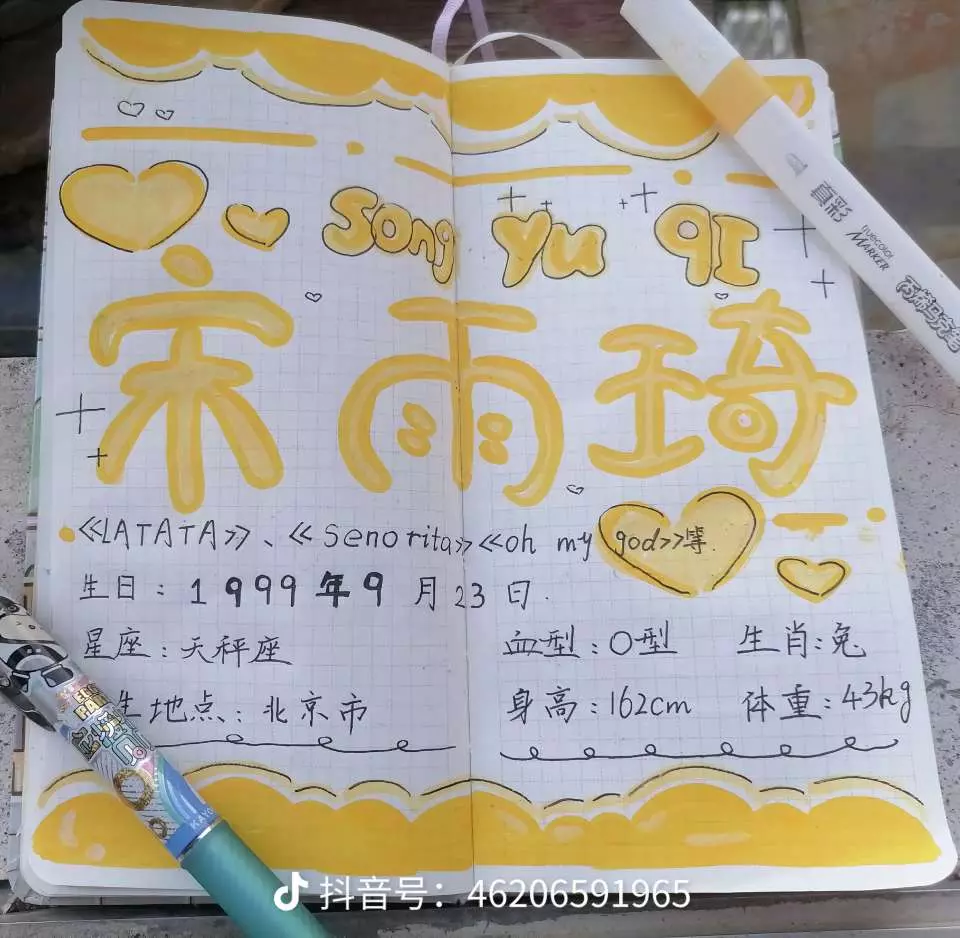 Song Yu QI
宋雨琦
《LATATA》、《Senorita》《oh my god》等.
生日：1999年9月23日.
星座：天秤座
血型：O型 生肖：兔
生地点：北京市
身高：162cm 体重：43kg
真彩
truecolor
MARKER
丙烯马克笔
抖音号：46206591965